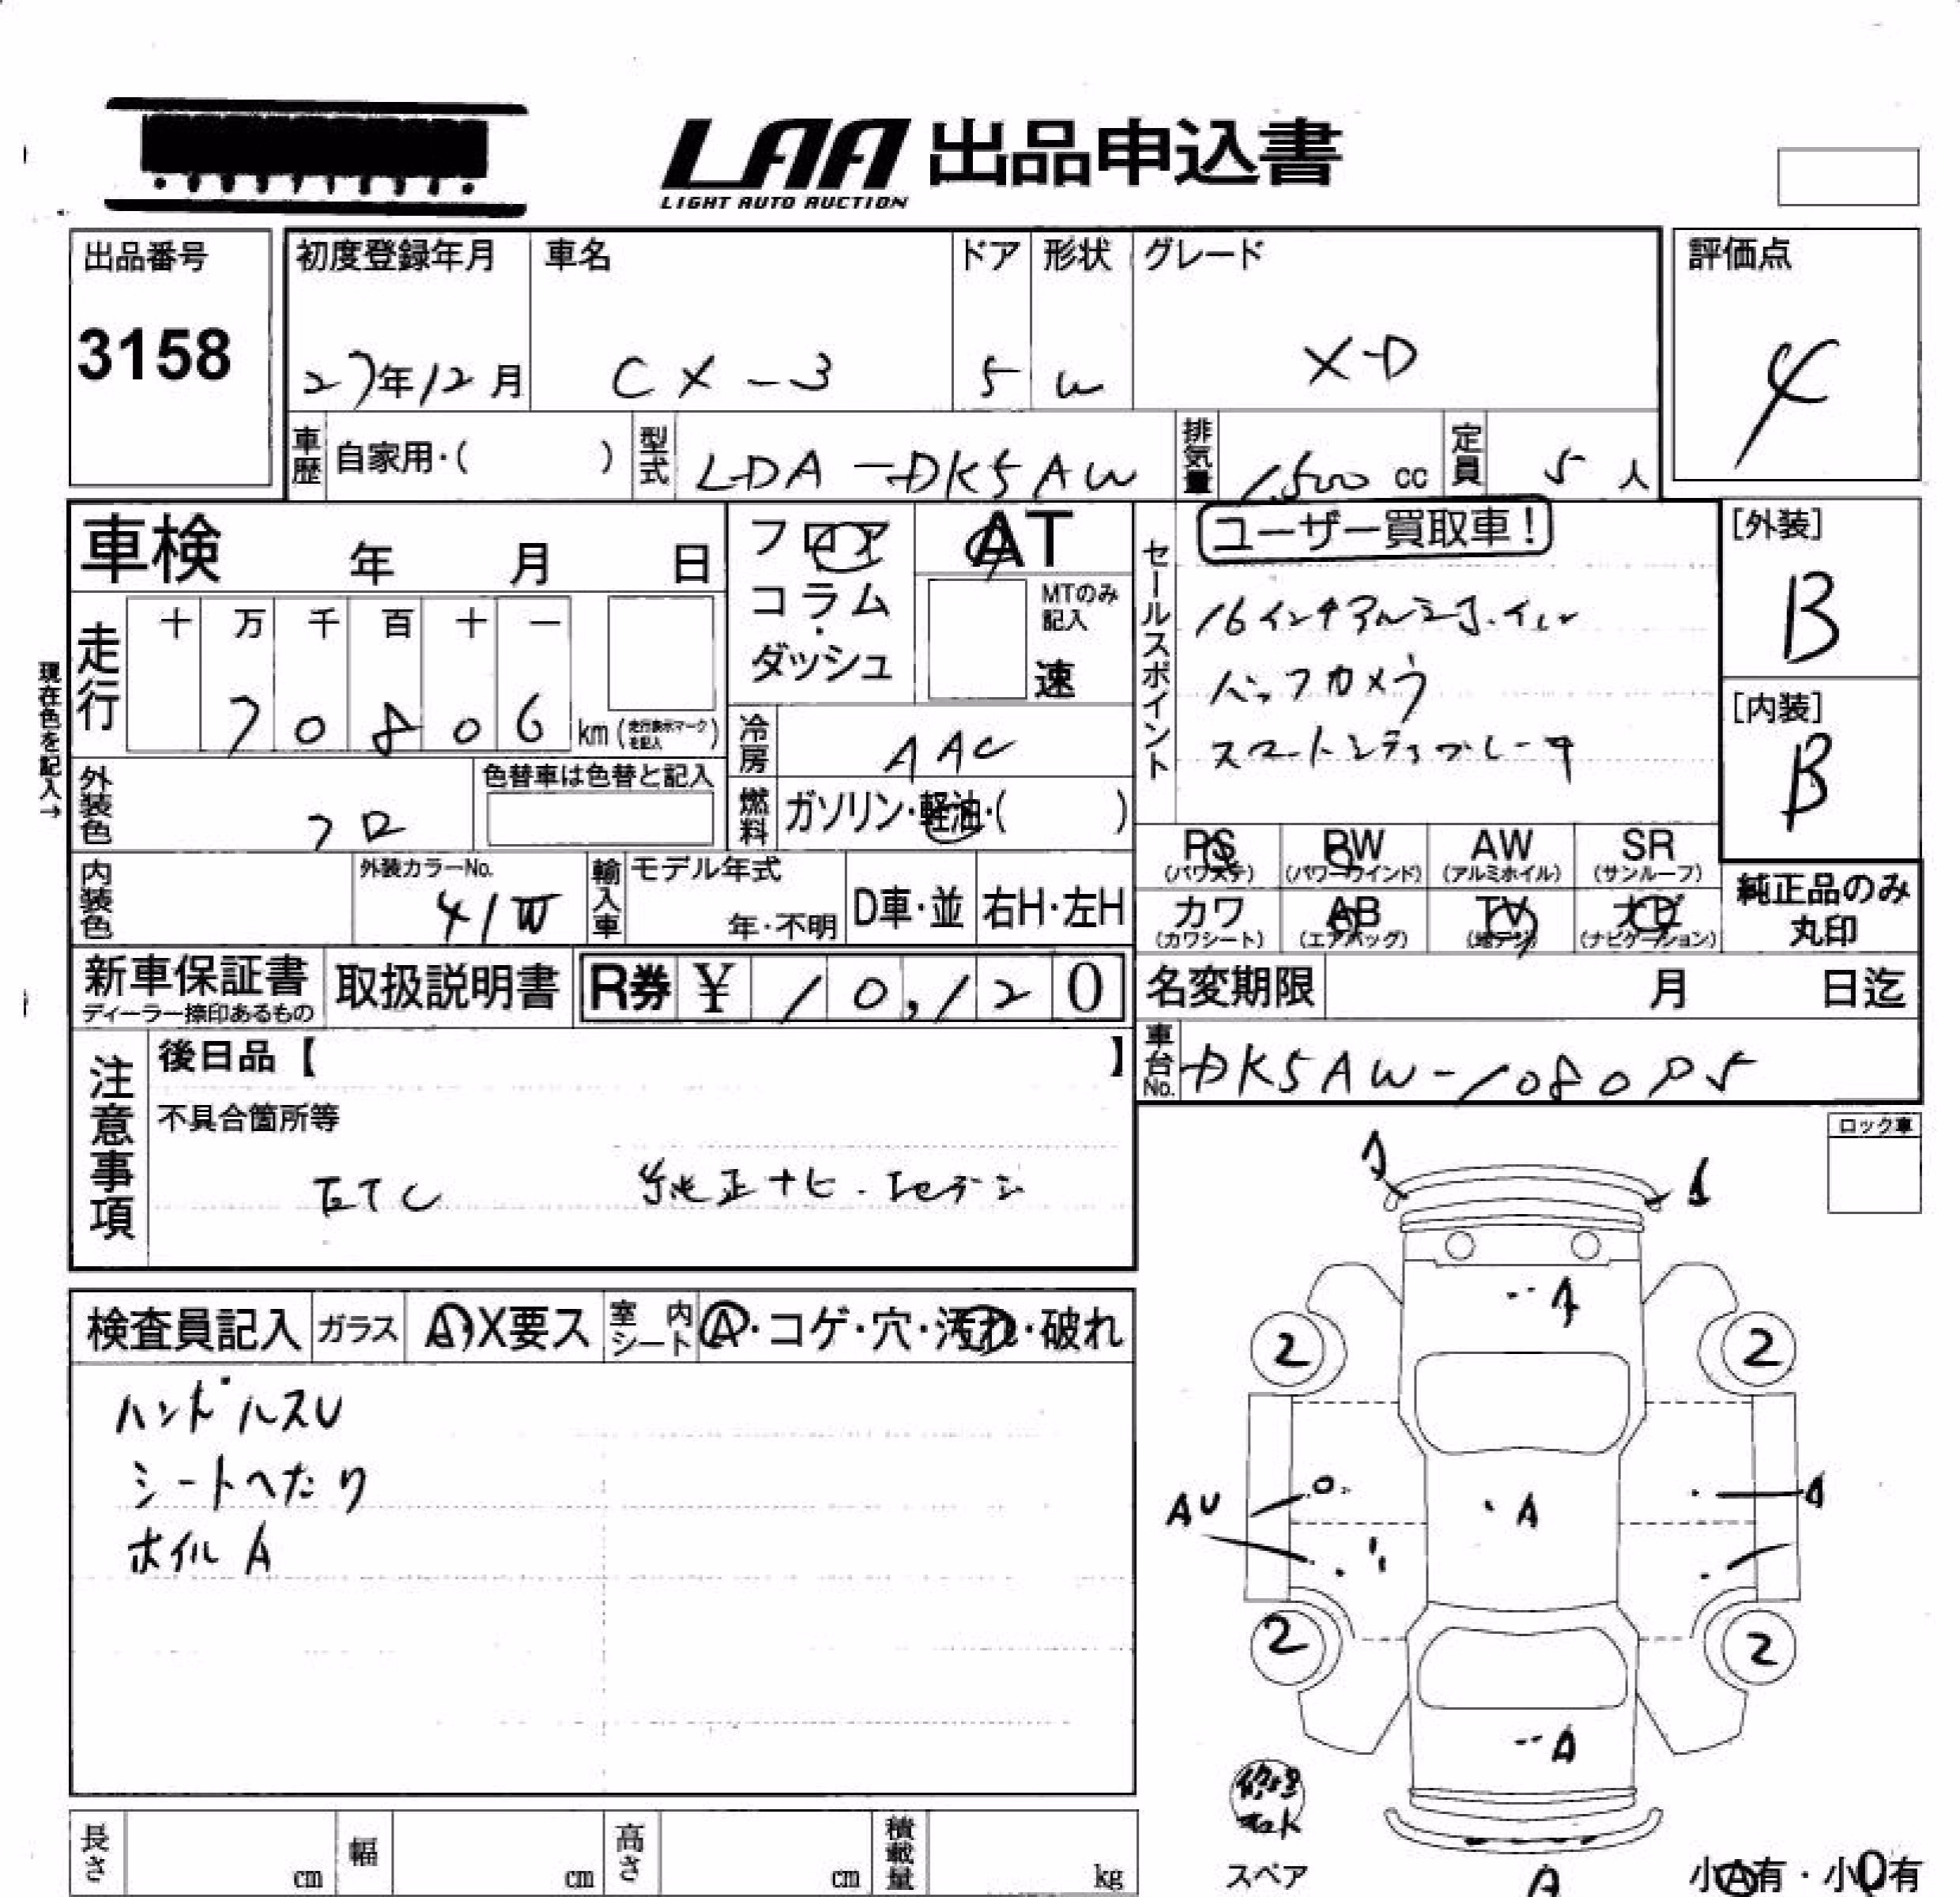 LAA 出品申込書
LIGHT AUTO AUCTION
出品番号
3158
初度登録年月
27年12月
車名
CX-3
ドア
5
形状
W
グレード
X-D
評価点
4
車歴 自家用・( )
型式 LDA-DK5AW
排気量 1,500 cc
定員 5 人
車検 年 月 日
フロア
コラム
・
ダッシュ
AT
MTのみ記入
速
セールスポイント
ユーザー買取車!
16インチアルミホイル
バックカメラ
スマートシティブレーキ
[外装]
B
[内装]
B
現在色を記入→
走行
十 万 千 百 十 一
70806 km (走行表示マークを記入)
冷房 AAC
外装色 クロ
色替車は色替と記入
燃料 ガソリン・軽油・( )
PS (パワステ)
PW (パワーウインド)
AW (アルミホイル)
SR (サンルーフ)
内装色
外装カラーNo.
41W
輸入車
モデル年式
年・不明
D車・並
右H・左H
カワ (カワシート)
AB (エアバッグ)
TV (地デジ)
ナビ (ナビゲーション)
純正品のみ
丸印
新車保証書
ディーラー捺印あるもの
取扱説明書
R券 ¥ 10,120
名変期限 月 日迄
車台No. DK5AW-108095
注意事項
後日品【 】
不具合箇所等
ETC 純正ナビ・地デジ
ロック車
検査員記入
ガラス
A・X要ス
室内シート
A・コゲ・穴・汚れ・破れ
ハンドルスレ
シートへたり
ホイルA
A
A
A
2
2
AU
A
A
2
2
A
スペア
A
小A有・小U有
長さ cm
幅 cm
高さ cm
積載量 kg